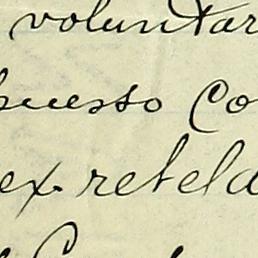 voluntar
puesso Co
ex. retela